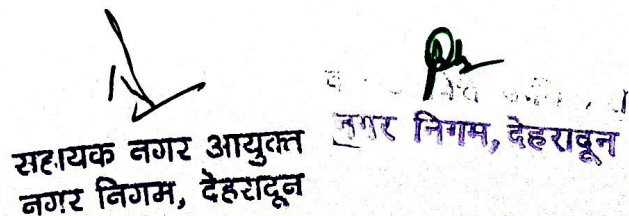 सहायक नगर आयुक्त
नगर निगम, देहरादून
नगर निगम, देहरादून